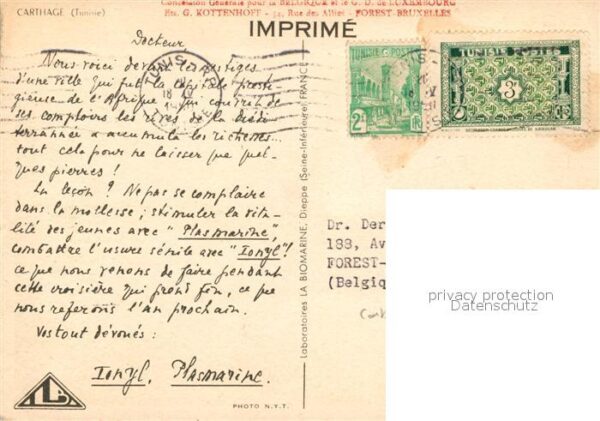 Concession Générale pour la BELGIQUE et le G. D. de LUXEMBOURG
Ets. G. KOTTENHOFF - 52, Rue des Alliés - FOREST-BRUXELLES
CARTHAGE (Tunisie)
IMPRIMÉ
Docteur
Nous voici devant les vestiges
d'une ville qui fut la capitale presti-
gieuse de l'Afrique, qui couvrit de
ses comptoirs les rives de la Médi
terrannée & accumula les richesses...
tout cela pour ne laisser que quel-
ques pierres !
La leçon ? Ne pas se complaire
dans la mollesse ; stimuler la vita-
lité des jeunes avec "Plasmarine",
combattre l'usure sénile avec "Ionyl"!
ce que nous venons de faire pendant
cette croisière qui prend fin, ce que
nous referons l'an prochain.
Vos tout dévoués :
Ionyl, Plasmarine.
PHOTO N.Y.T.
Laboratoires LA BIOMARINE, Dieppe (Seine-Inférieure) FRANCE
TUNIS
TUNISIE POSTES
2F
TUNISIE POSTES
3F
Dr. Der
188, Av
FOREST-
(Belgiq
privacy protection
Datenschutz